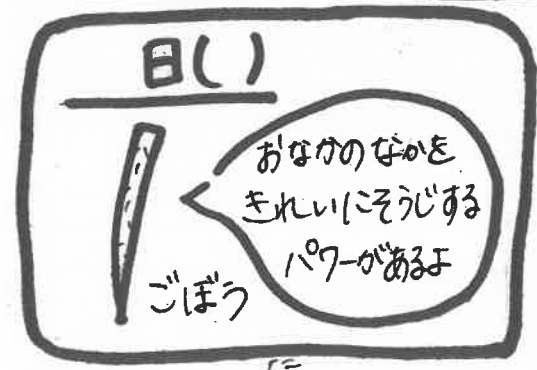 日( )
おなかのなかを
きれいにそうじする
パワーがあるよ
ごぼう